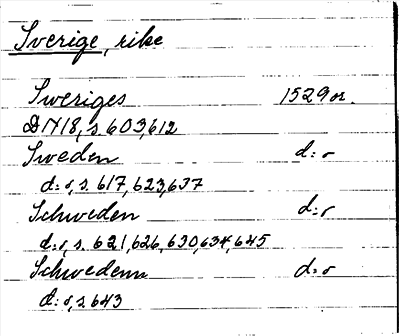 Sverige, rike
Sweriges 1529 or.
DN 18, s. 603, 612
Sweden d:o
d:o, s. 617, 623, 637
Schweden d:o
d:o, s. 621, 626, 630, 634, 645
Schwedenn d:o
d:o, s 643